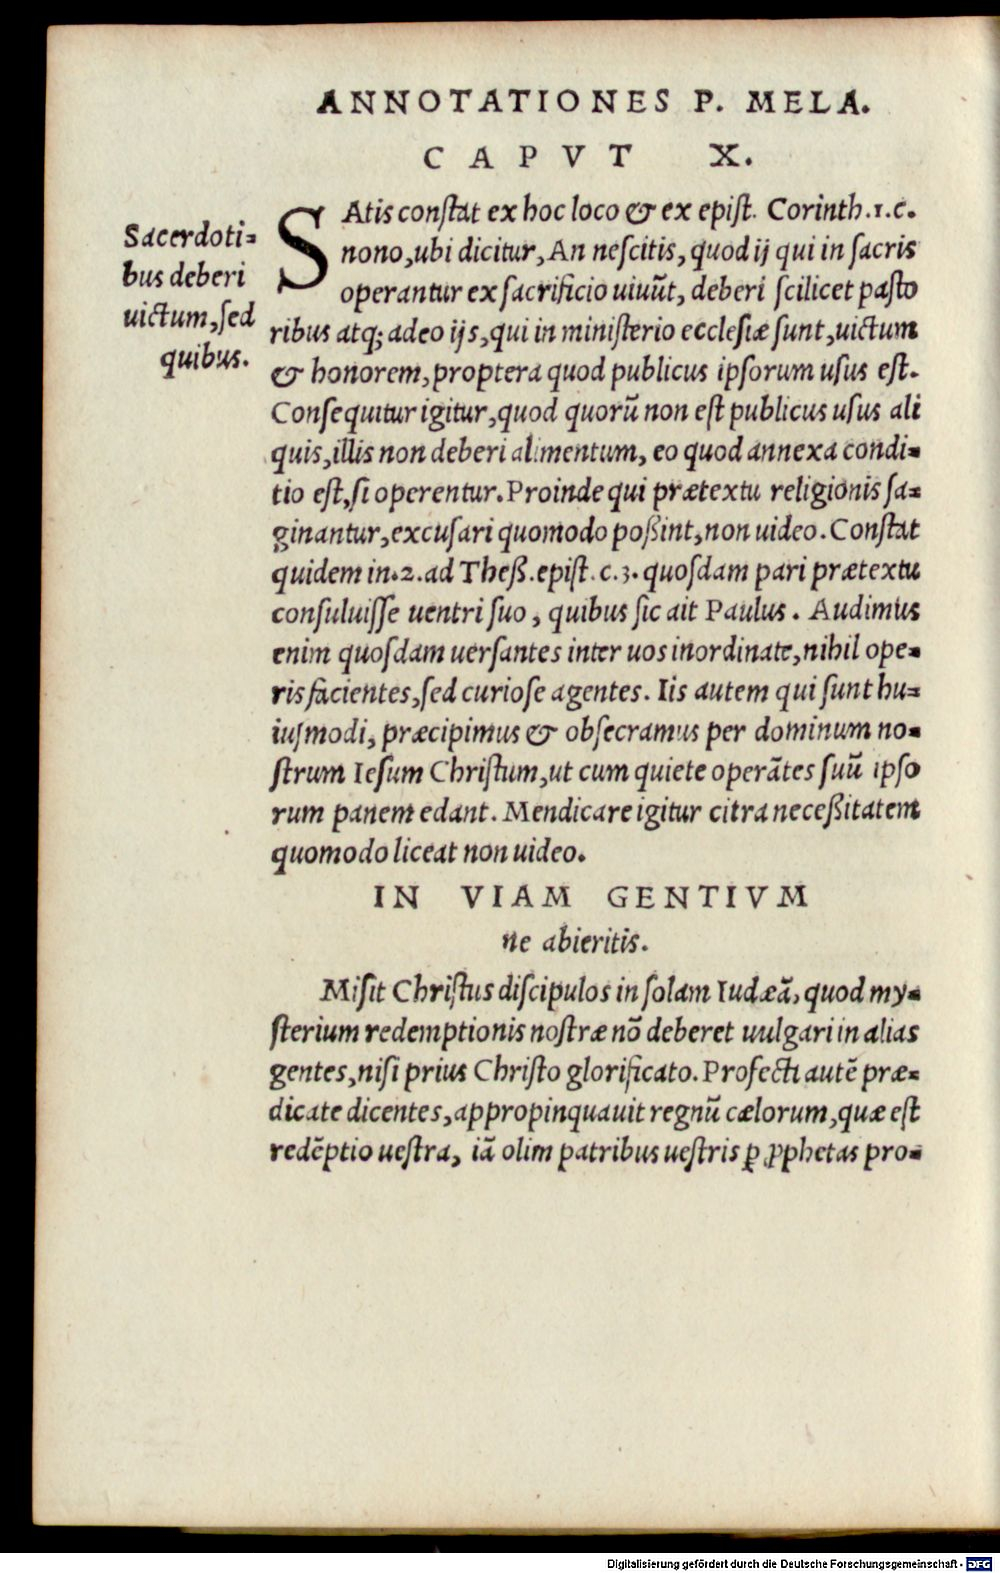 ANNOTATIONES P. MELA.
CAPVT X.
Sacerdoti=
bus deberi
uictum, sed
quibus.
SAtis constat ex hoc loco & ex epist. Corinth.1.c.
nono, ubi dicitur, An nescitis, quod ij qui in sacris
operantur ex sacrificio uiuūt, deberi scilicet pasto
ribus atq; adeo ijs, qui in ministerio ecclesiæ sunt, uictum
& honorem, proptera quod publicus ipsorum usus est.
Consequitur igitur, quod quorū non est publicus usus ali
quis, illis non deberi alimentum, eo quod annexa condi=
tio est, si operentur. Proinde qui prætextu religionis sa=
ginantur, excusari quomodo poßint, non uideo. Constat
quidem in.2.ad Theß.epist.c.3. quosdam pari prætextu
consuluisse uentri suo, quibus sic ait Paulus. Audimus
enim quosdam uersantes inter uos inordinate, nihil ope=
ris facientes, sed curiose agentes. Iis autem qui sunt hu=
iusmodi, præcipimus & obsecramus per dominum no=
strum Iesum Christum, ut cum quiete operātes suū ipso
rum panem edant. Mendicare igitur citra neceßitatem
quomodo liceat non uideo.
IN VIAM GENTIVM
ne abieritis.
Misit Christus discipulos in solam Iudæā, quod my=
sterium redemptionis nostræ nō deberet uulgari in alias
gentes, nisi prius Christo glorificato. Profecti autē præ=
dicate dicentes, appropinquauit regnū cælorum, quæ est
redēptio uestra, iā olim patribus uestris ꝑ ꝓphetas pro=
Digitalisierung gefördert durch die Deutsche Forschungsgemeinschaft - DFG